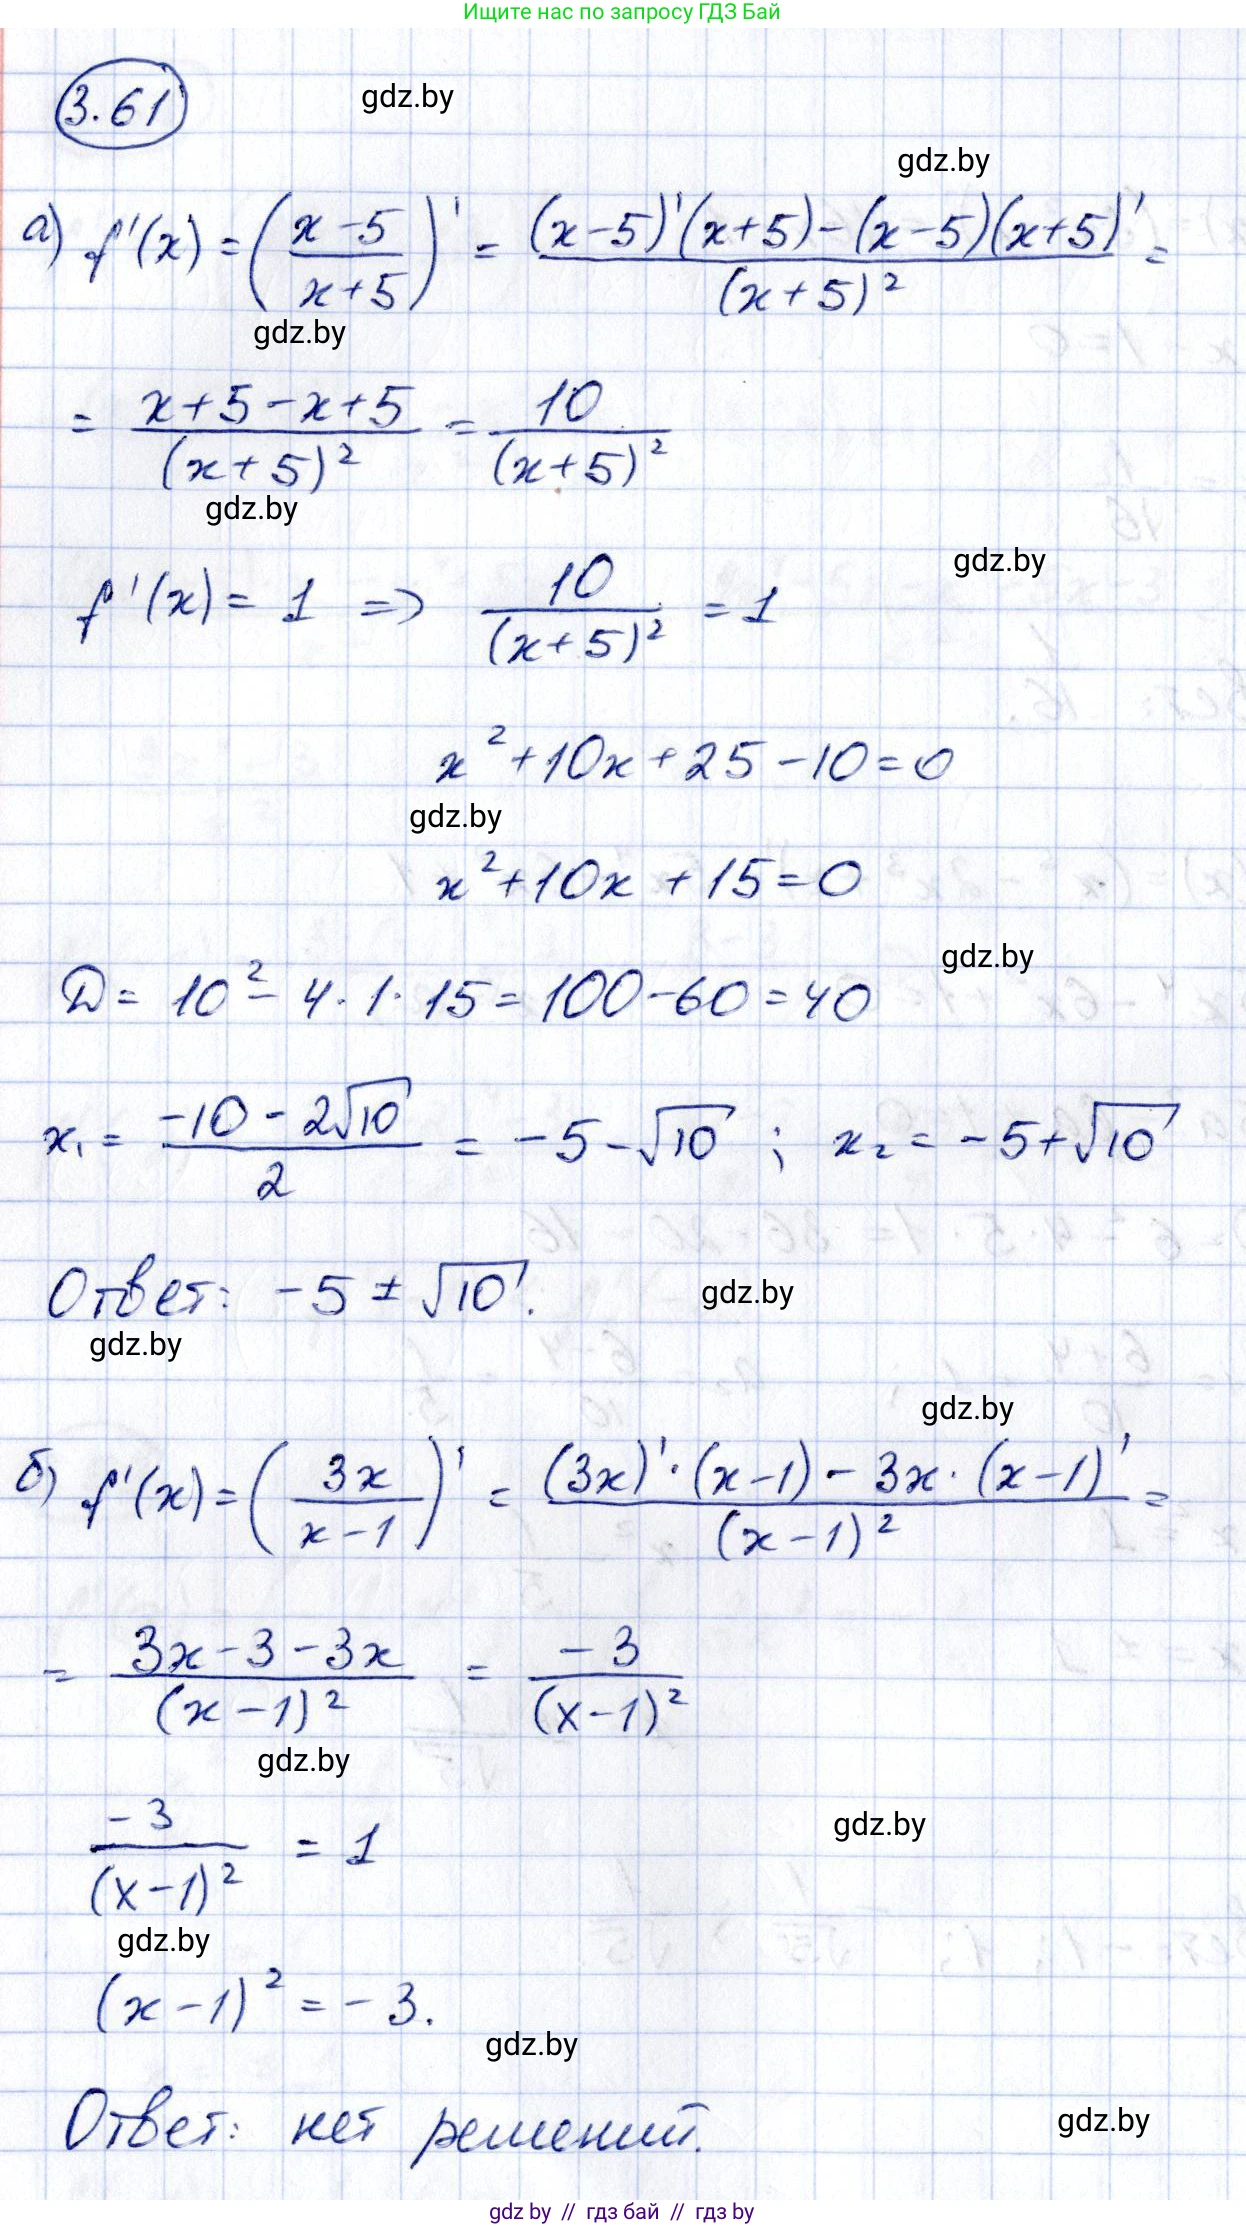 Ищите нас по запросу ГДЗ Бай
3.61
gdz.by
gdz.by
а) f'(x) = ((x-5)/(x+5))' = ((x-5)'(x+5)-(x-5)(x+5)')/(x+5)² =
gdz.by
= (x+5-x+5)/(x+5)² = 10/(x+5)²
gdz.by
gdz.by
f'(x) = 1 => 10/(x+5)² = 1
x²+10x+25-10=0
gdz.by
x²+10x+15=0
gdz.by
D = 10² - 4·1·15 = 100-60 = 40
x₁ = (-10-2√10)/2 = -5-√10 ; x₂ = -5+√10
Ответ: -5 ± √10.
gdz.by
gdz.by
gdz.by
б) f'(x) = (3x/(x-1))' = ((3x)'·(x-1) - 3x·(x-1)')/(x-1)² =
= (3x-3-3x)/(x-1)² = -3/(x-1)²
gdz.by
-3/(x-1)² = 1
gdz.by
gdz.by
(x-1)² = -3.
gdz.by
Ответ: нет решений.
gdz.by
gdz by // гдз бай // гдз by